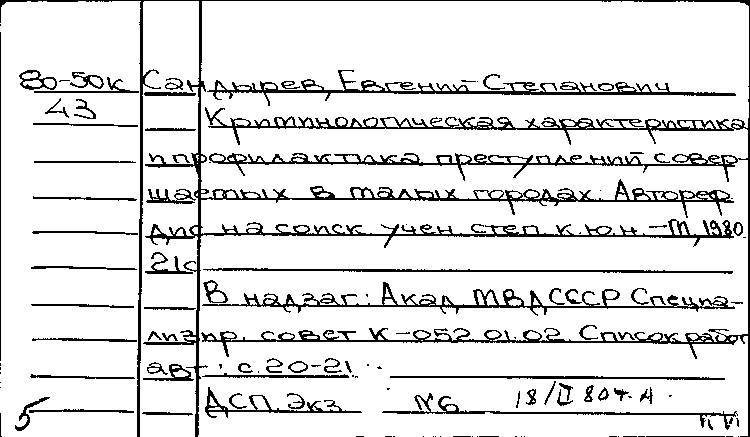 80-50к Сандырев, Евгений Степанович
43 Криминологическая характеристика
и профилактика преступлений, совер-
шаемых в малых городах: Автореф
дис на соиск учен степ к.ю.н. -М, 1980
21с
В надзаг: Акад МВД СССР Специа-
лизир. совет К-052 01.02. Список работ
авт.: с. 20-21
ДСП. Экз N6 18/II 80г. А.
5